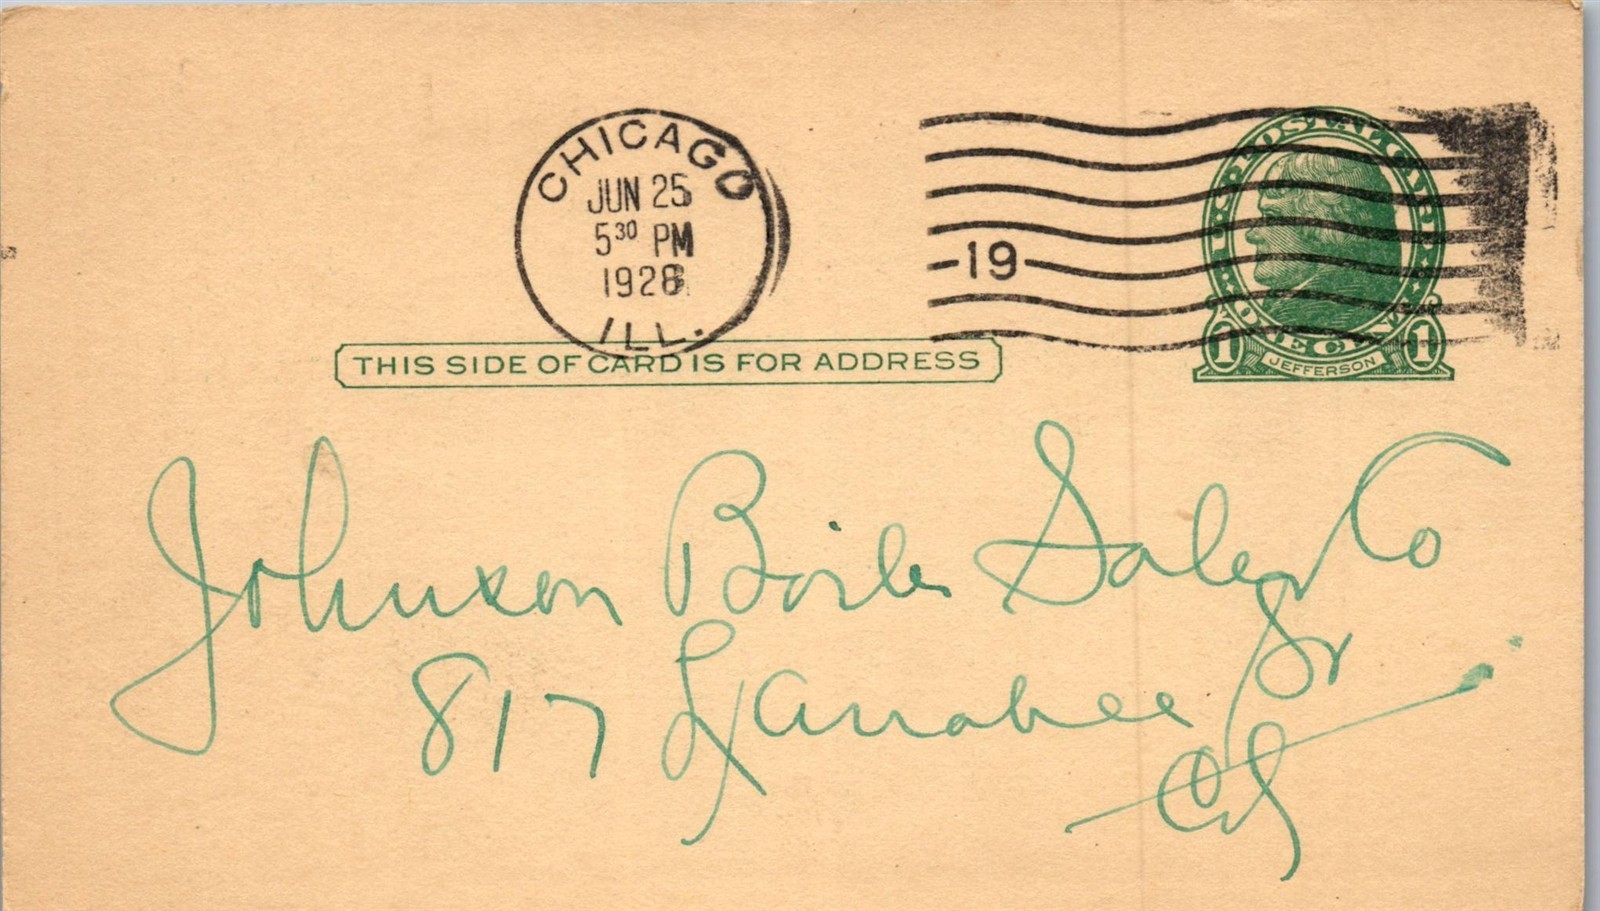 CHICAGO
JUN 25
5 30 PM
1928
ILL.
19
U.S. POSTAL CARD
ONE CENT
1 JEFFERSON 1
THIS SIDE OF CARD IS FOR ADDRESS
Johnson Boiler Sales Co
817 Larrabee St
City